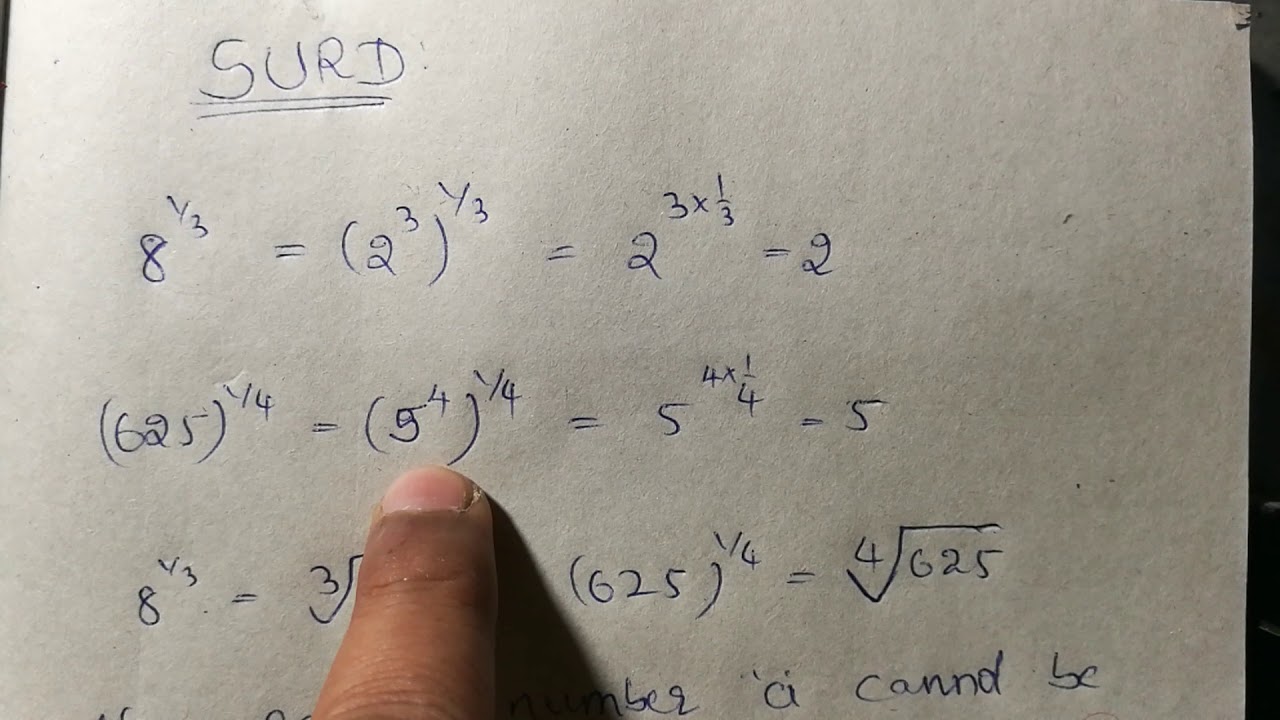 SURD:
8^{1/3} = (2^3)^{1/3} = 2^{3×1/3} = 2
(625)^{1/4} = (5^4)^{1/4} = 5^{4×1/4} = 5
8^{1/3} = ∛ (625)^{1/4} = ∜625
number 'a cannot be